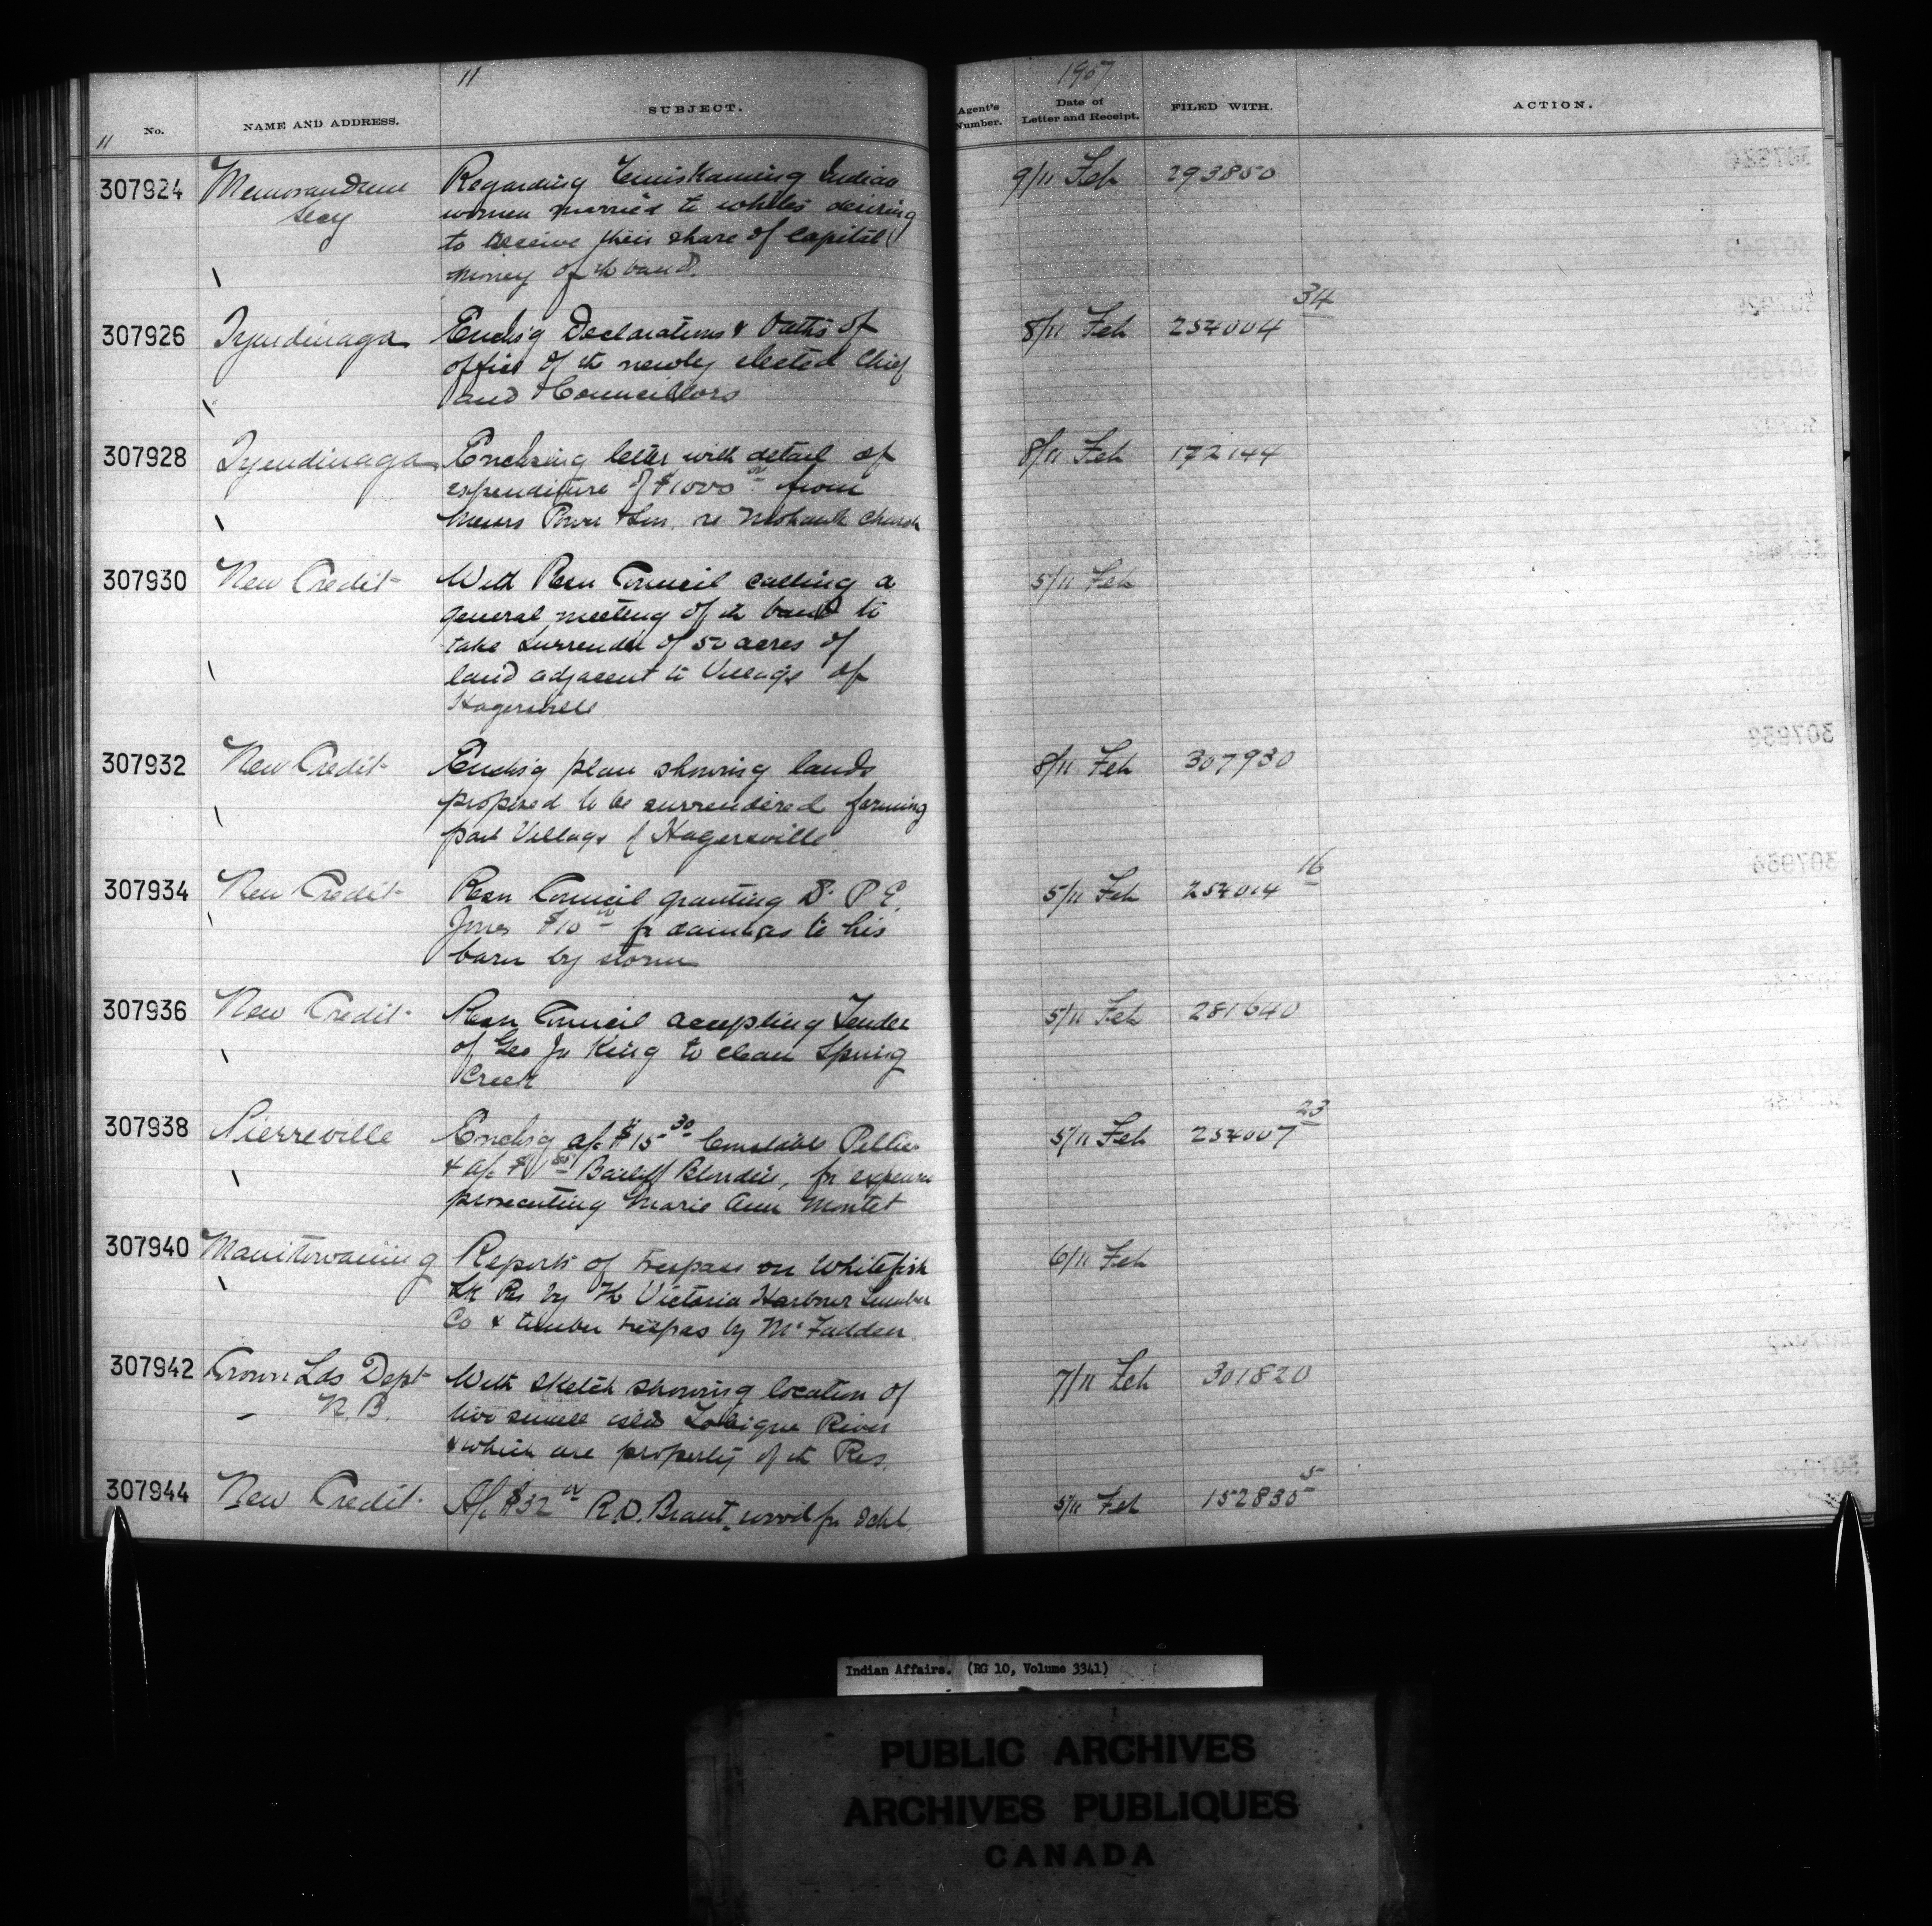 11
1907
No.
NAME AND ADDRESS.
SUBJECT.
Agent's Number.
Date of Letter and Receipt.
FILED WITH.
ACTION.
11
307924 Memorandum Regarding Temiskaming Indian 9/11 Feb 293850
Secy women married to whites desiring
to receive their share of capital
money of th band.
307926 Tyendinaga Enclsg Declarations & Oaths of 8/11 Feb 254004 34
office of th newly elected Chief
and Councillors
307928 Tyendinaga Enclosing letter with detail of 8/11 Feb 172144
expenditure of $1000 00 from
Messrs Power & Son. re Mohawk Church
307930 New Credit With Resn Council calling a 5/11 Feb
general meeting of th band to
take surrender of 50 acres of
land adjacent to Village of
Hagersville
307932 New Credit Enclsg plan showing lands 8/11 Feb 307930
proposed to be surrendered forming
part Village of Hagersville
307934 New Credit Resn Council granting Dr P E. 5/11 Feb 254014 16
Jones $10 00 fr damages to his
barn by storm
307936 New Credit Resn Council accepting Tender 5/11 Feb 281640
of Geo Jr King to clean Spring
Creek
307938 Pierreville Enclsg a/c $15 30 Constable Peltier 5/11 Feb 254007 23
& a/c Bailiff Blondin, fr expenses
prosecuting Marie Ann Montet
307940 Manitowaning Reports of trespass on Whitefish 6/11 Feb
Lk Res by Th Victoria Harbour Lumber
Co & timber trespas by McFadden
307942 Crown Lds Dept With sketch showing location of 7/11 Feb 301820
N.B. two small islds Tobique River
& which are property of th Res.
307944 New Credit A/c $32 00 R.D. Brant wood fr Schl 5/11 Feb 152835 5
Indian Affairs. (RG 10, Volume 3341)
PUBLIC ARCHIVES
ARCHIVES PUBLIQUES
CANADA